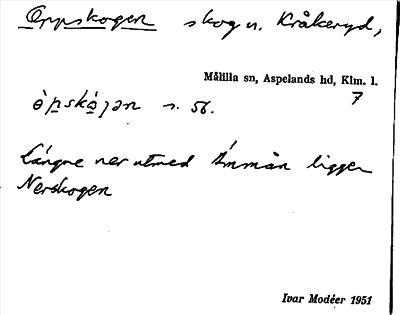 Oppskogen skog n. Kråkeryd,
Målilla sn, Aspelands hd, Klm. l.
7
òpskó̱gən n. 56.
Längre ner utmed Emmån ligger
Nerskogen
Ivar Modéer 1951